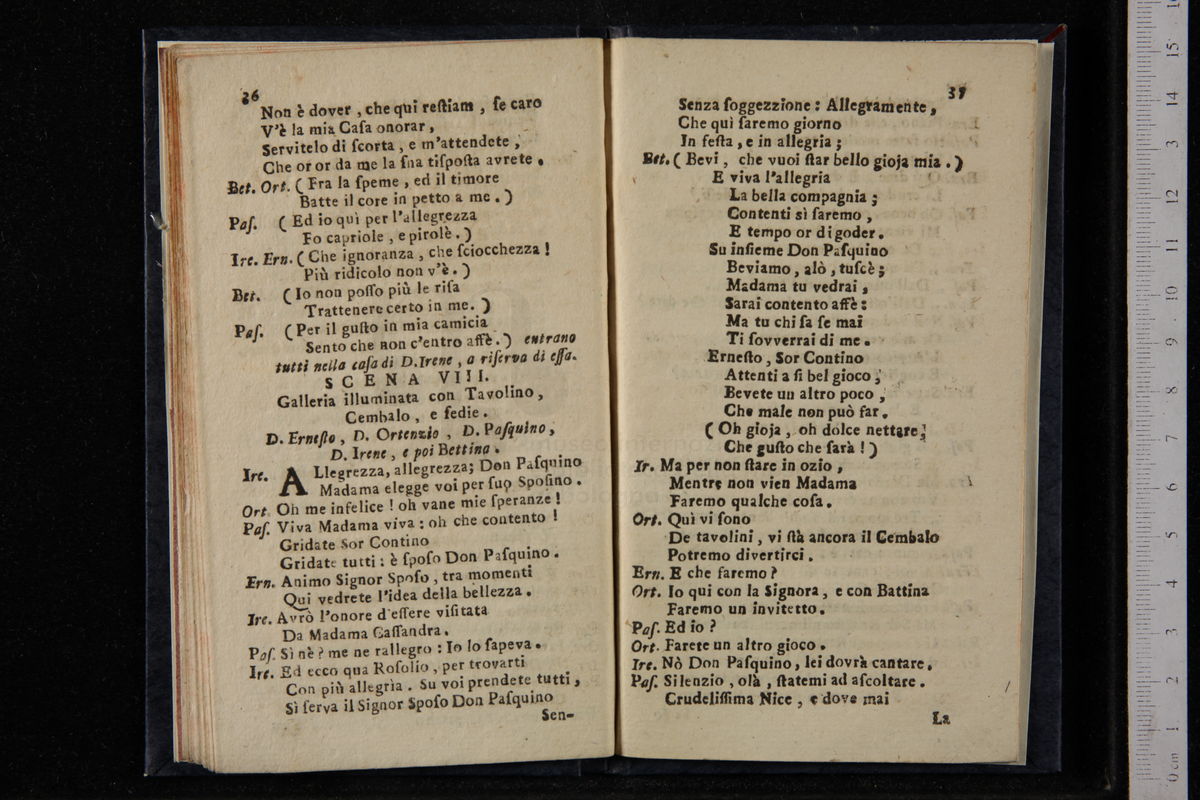 36
Non è dover , che qui reſtiam , ſe caro
V'è la mia Caſa onorar ,
Servitelo di ſcorta , e m'attendete ,
Che or or da me la ſua tiſpoſta avrete .
Bet. Ort. ( Fra la ſpeme , ed il timore
Batte il core in petto a me . )
Paſ. ( Ed io quì per l'allegrezza
Fo capriole , e pirolè . )
Ire. Ern. ( Che ignoranza , che ſciocchezza !
Più ridicolo non v'è . )
Bet. ( Io non poſſo più le riſa
Trattenere certo in me . )
Paſ. ( Per il guſto in mia camicia
Sento che non c'entro affè . ) entrano
tutti nella caſa di D. Irene , a riſerva di eſſa.
SCENA VIII.
Galleria illuminata con Tavolino ,
Cembalo , e ſedie .
D. Erneſto , D. Ortenzio , D. Paſquino ,
D. Irene , e poi Bettina .
Ire. ALlegrezza, allegrezza; Don Paſquino
Madama elegge voi per ſuo Spoſino .
Ort. Oh me infelice ! oh vane mie ſperanze !
Paſ. Viva Madama viva : oh che contento !
Gridate Sor Contino
Gridate tutti : è ſpoſo Don Paſquino .
Ern. Animo Signor Spoſo , tra momenti
Qui vedrete l'idea della bellezza .
Ire. Avrò l'onore d'eſſere viſitata
Da Madama Caſſandra .
Paſ. Sì nè ? me ne rallegro : Io lo ſapeva .
Ire. Ed ecco qua Roſolio , per trovarti
Con più allegria . Su voi prendete tutti ,
Sì ſerva il Signor Spoſo Don Paſquino
Sen-
37
Senza ſoggezzione : Allegramente ,
Che quì ſaremo giorno
In feſta , e in allegria ;
Bet. ( Bevi , che vuoi ſtar bello gioja mia . )
E viva l'allegria
La bella compagnia ;
Contenti sì ſaremo ,
E tempo or di goder .
Su inſieme Don Paſquino
Beviamo , alò , tuſcè ;
Madama tu vedrai ,
Sarai contento affè :
Ma tu chi ſa ſe mai
Ti ſovverrai di me .
Erneſto , Sor Contino
Attenti a ſi bel gioco ,
Bevete un altro poco ,
Che male non può far .
( Oh gioja , oh dolce nettare ,
Che guſto che ſarà ! )
Ir. Ma per non ſtare in ozio ,
Mentre non vien Madama
Faremo qualche coſa .
Ort. Quì vi ſono
De tavolini , vi ſtà ancora il Cembalo
Potremo divertirci .
Ern. E che faremo ?
Ort. Io qui con la Signora , e con Battina
Faremo un invitetto .
Paſ. Ed io ?
Ort. Farete un altro gioco .
Ire. Nò Don Paſquino , lei dovrà cantare .
Paſ. Silenzio , olà , ſtatemi ad aſcoltare .
Crudeliſſima Nice , e dove mai
La